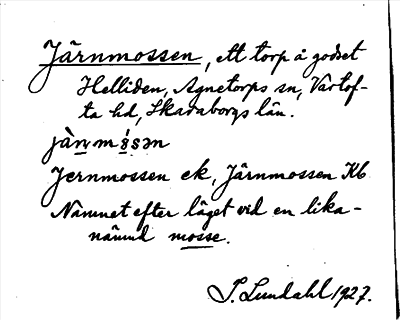 Järnmossen, ett torp å godset
Helliden, Agnetorps sn, Vartof-
ta hd, Skaraborgs län.
jà̀n̥mɔ́sən
Jernmossen ek, Järnmossen Kb
Namnet efter läget vid en lika-
nämnd mosse.
S. Lundahl 1927.